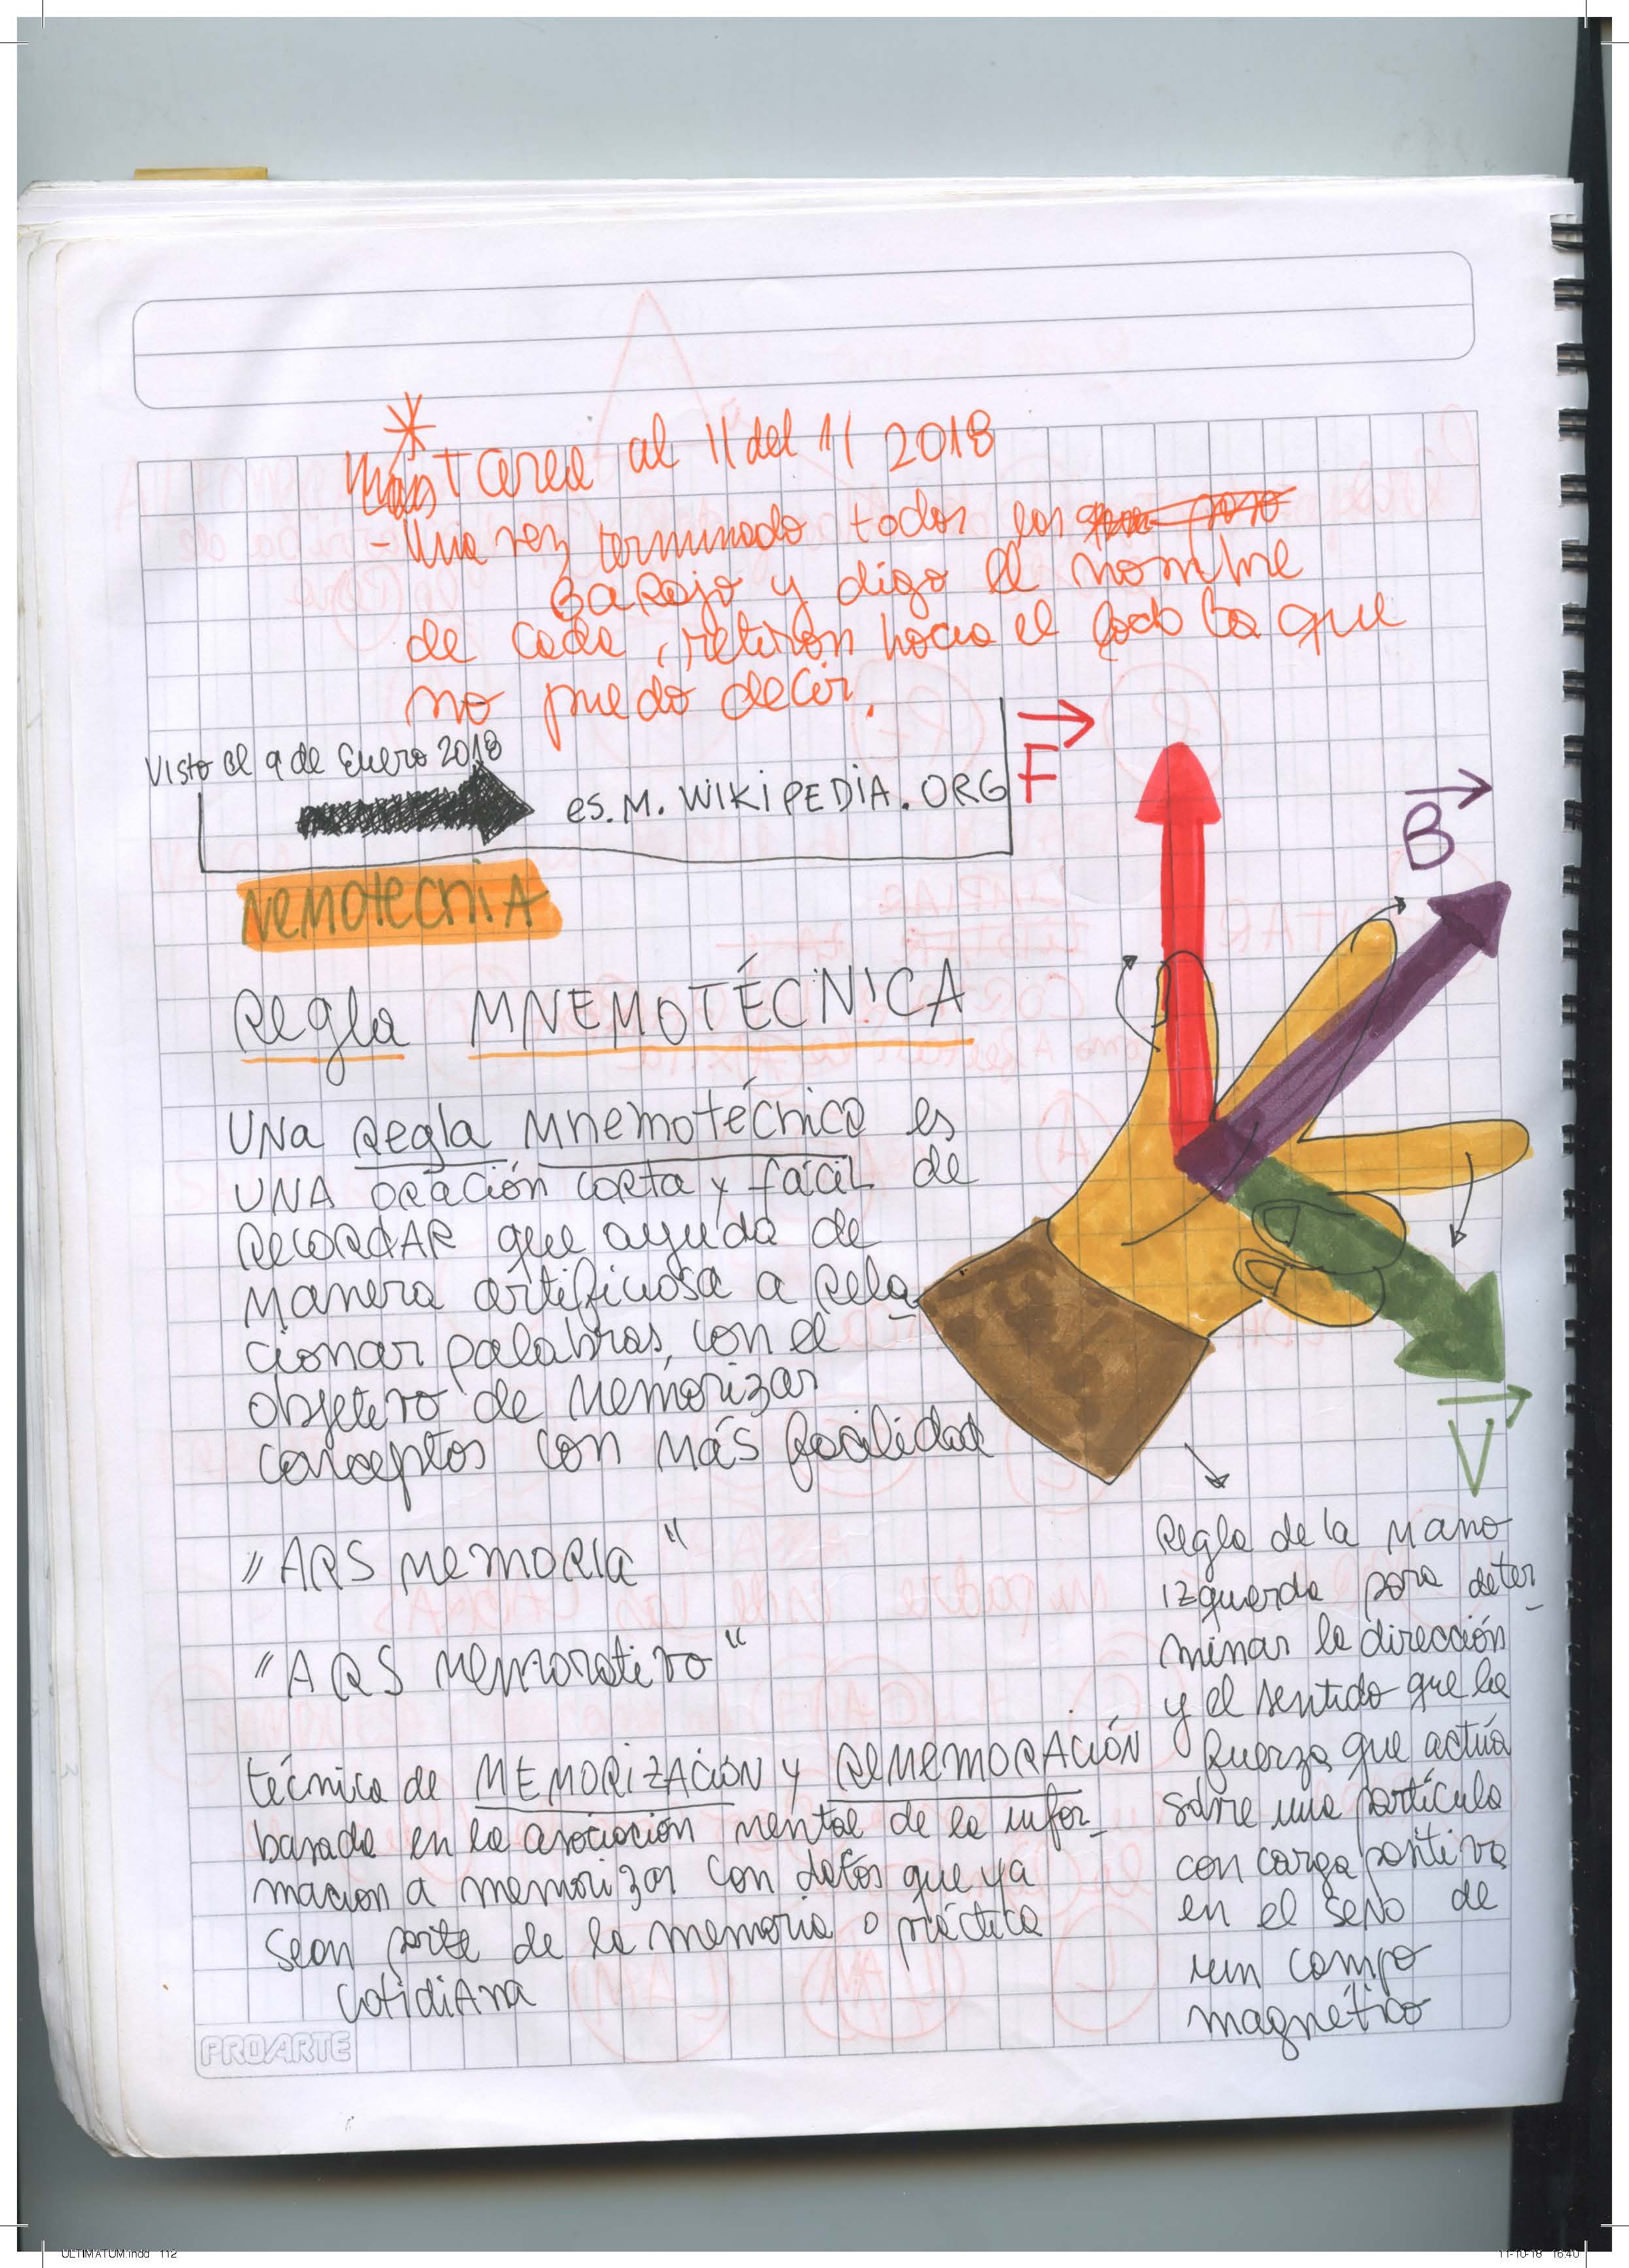 * Mas
Tarea al 11 del 11 2018
- Una vez terminado todos los
Barajo y digo el nombre
de cada, retiron hacia el lado lo que
no puedo decir.
Visto el 9 de Enero 2018
es.M.WIKIPEDIA.ORG
F
B
NEMOTECNIA
Regla MNEMOTÉCNICA
UNA Regla Mnemotécnica es
UNA oración corta y fácil de
RECORDAR que ayuda de
manera artificiosa a rela_
cionar palabras, con el
objetivo de memorizar
conceptos con más facilidad
V
"ARS MEMORIA"
"ARS memorativa"
técnica de MEMORIZACIÓN y REMEMORACIÓN
basada en la asociación mental de la infor_
macion a memorizar con datos que ya
sean parte de la memoria o práctica
cotidiana
Regla de la mano
izquerda para deter_
minar la dirección
y el sentido que la
fuerza que actúa
sobre una partícula
con carga positiva
en el seno de
un campo
magnético
PROARTE
ULTIMATUM.indd 112
11-10-18 16:40